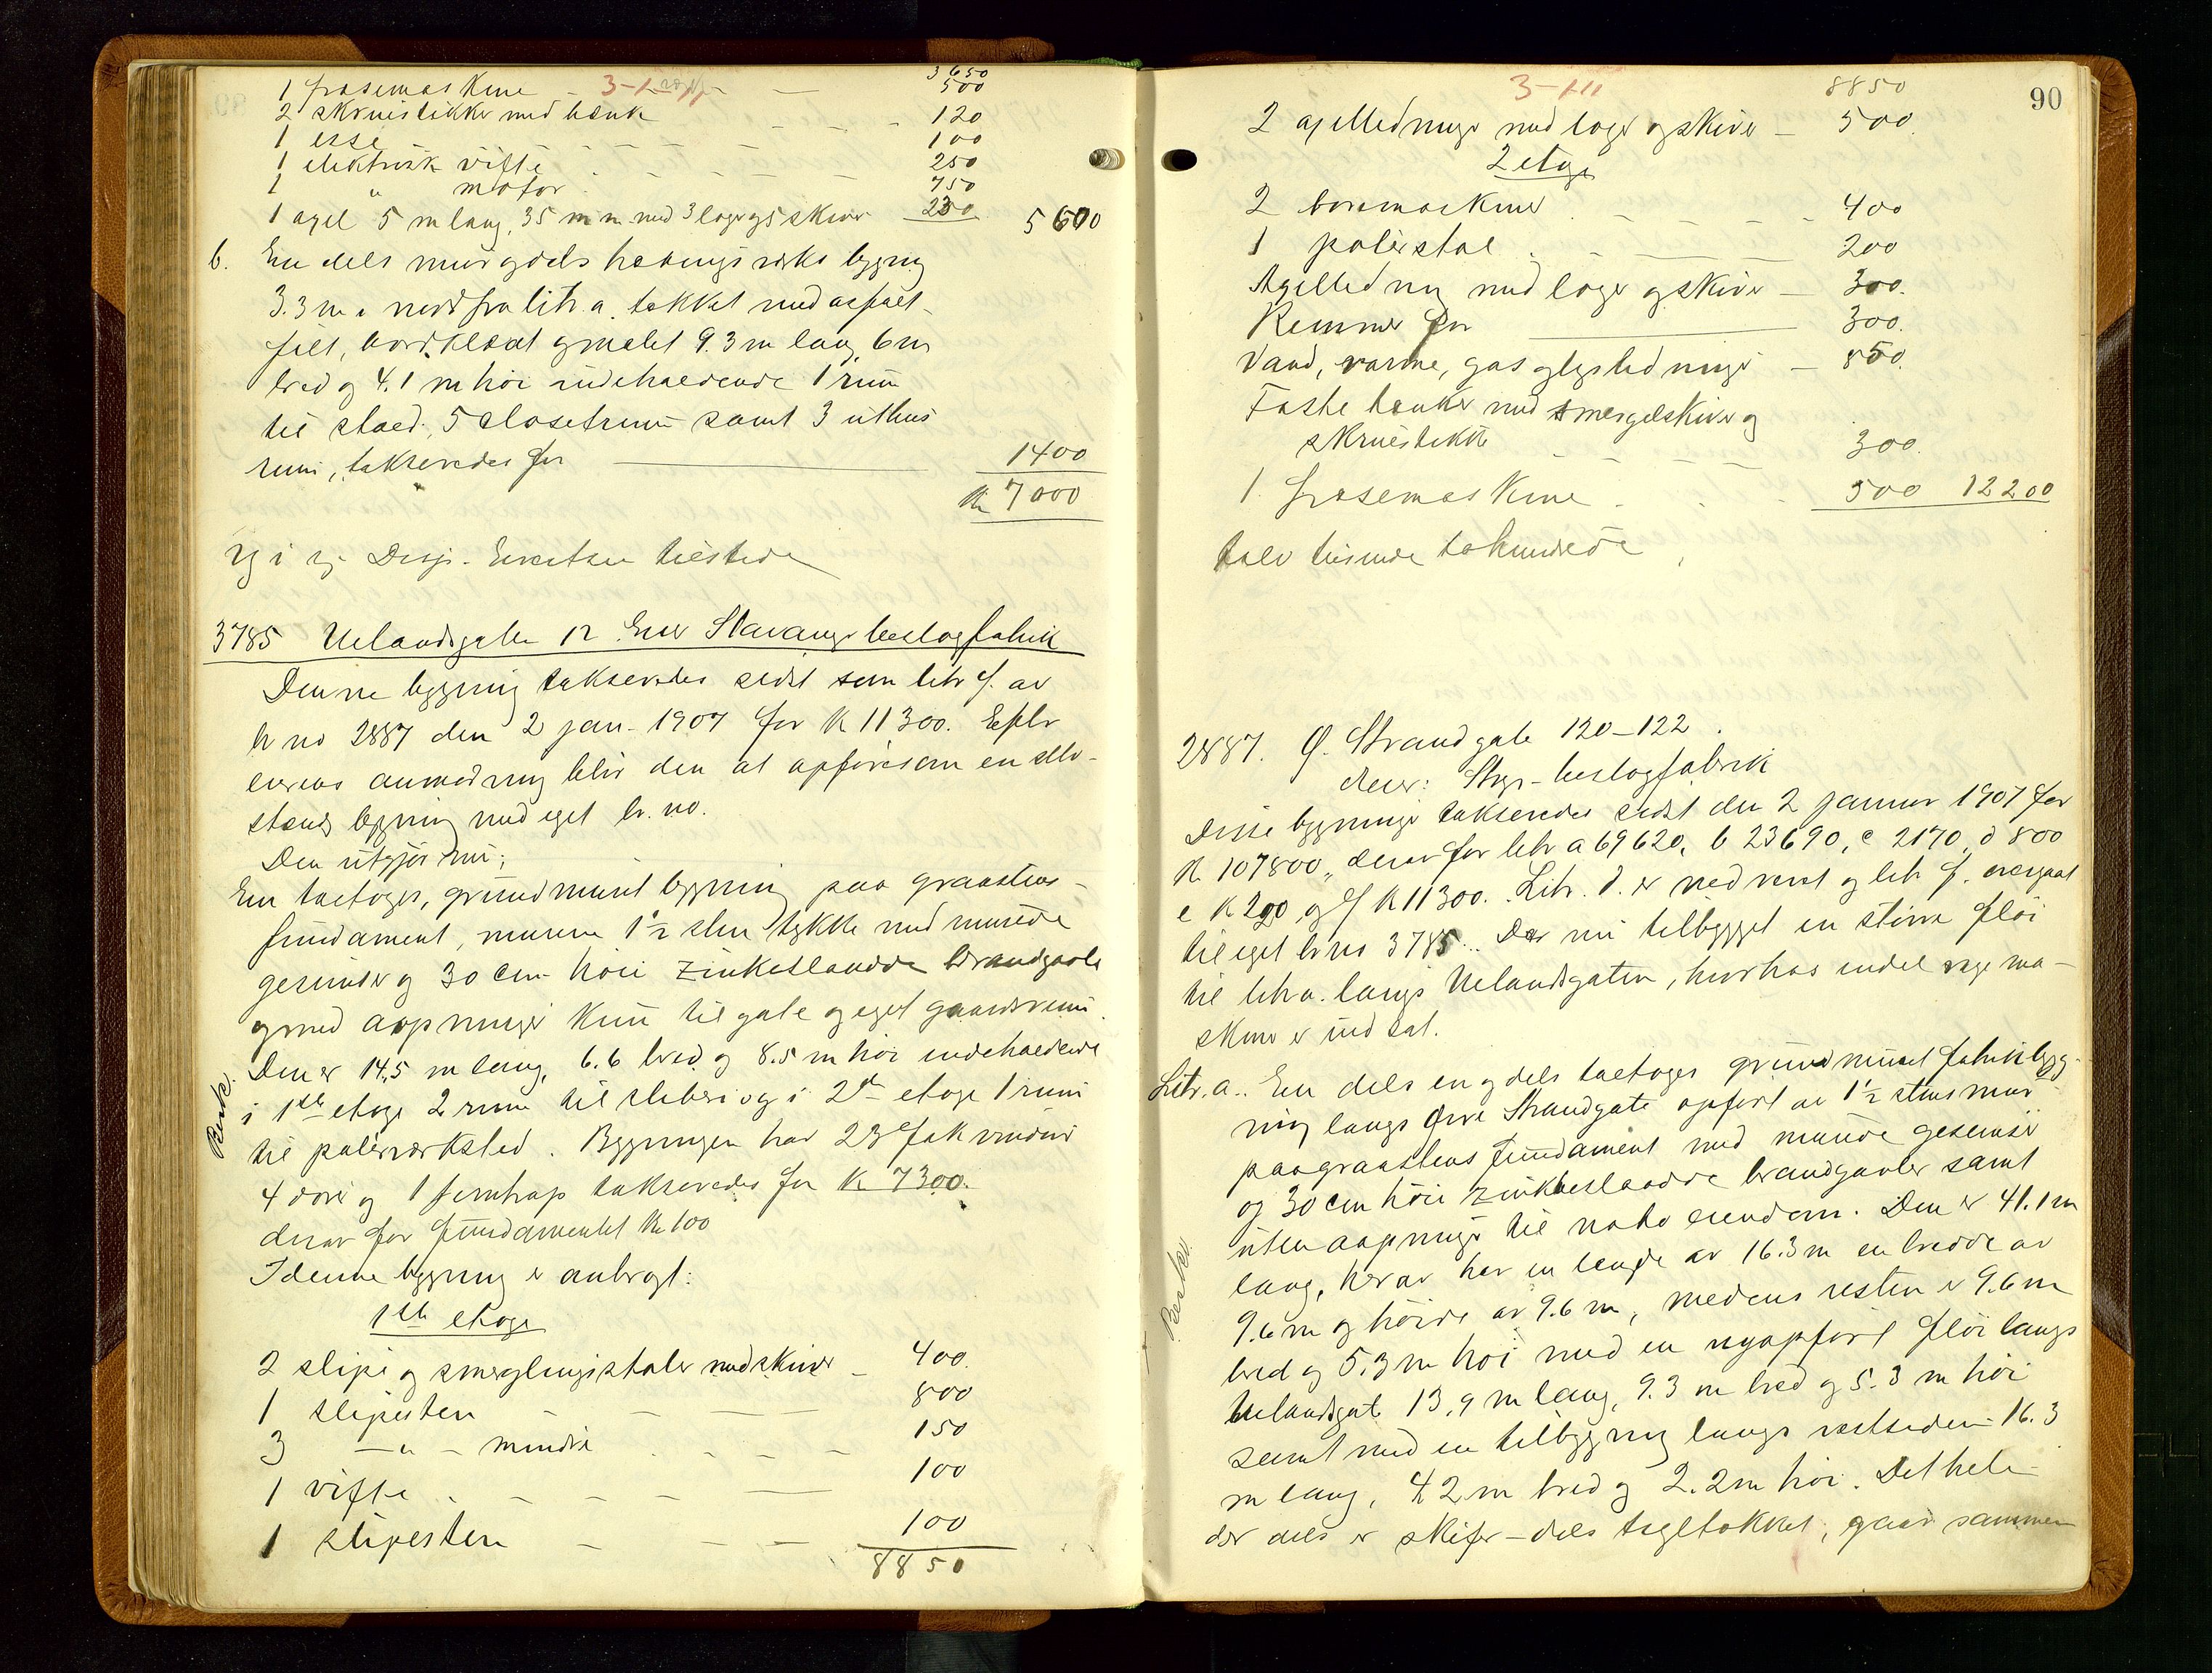 3650
1 fræsemaskine 500
2 skruestikker med bænk 120
1 esse 100
1 elektrisk vifte 250
1 " motor 750
1 axel 5 m lang, 35 m m med 3 lager og 5 skiver 230 5600
b. En dels mur og dels bygning
3.3 m nord fra litr. a. tækket med asfalt-
filt, bordklædt og malet 9.3 m lang, 6 m
bred og 4.1 m høi indeholdende 1 rum
til stald, 5 closetrum samt 3 uthus
rum, takseredes for 1400
Kr 7000
Disp. tilstede
3785 Uelandsgaten 12 Eier Stavanger beslagfabrik
Denne bygning takseredes sidst som litr f. av
br no 2887 den 2 jan. 1907 for K 11300. Efter
eierens anmodning blir den at opføre som en selv-
stændig bygning med eget br. no.
Den utgjør nu:
En toetages, grundmuret bygning paa graastens-
fundament, murene 1½ sten tykke med murede
gesimser og 30 cm høie zinkbeslaadde brandgavle
og med aapninger kun til gate og eget gaardsrum.
Den er 14,5 m lang, 6.6 bred og 8.5 m høi indeholdende
i 1ste etage 2 rum til sliberi og i 2den etage 1 rum
til polérværksted. Bygningen har 23 fak vinduer
4 døre og 1 jerntrap takseredes for K 7300.
derav for fundamentet K 100
I denne bygning er anbragt:
1ste etage
2 slipe og smerglingsstoler med skiver – 400.
1 slipesten 800
3 – " – mindre 150
1 vifte 100
1 slipesten 100
8850
Besk.
90
3-1-11
8850
2 axelledninger med lager og skiver – 500.
2 etage
2 boremaskiner 400
1 polérstol 200
Axelledning med lager og skiver – 300.
Remmer for 300.
Vand, varme, gas og lysledninger – 850.
Faste bænker med smergelskiver og
skruestikke 300.
1 fræsemaskine 500 12200
tolv tusinde tohundrede
2887. Ø. Strandgate 120–122
eier: Stvgr. beslagfabrik
Disse bygninger takseredes sidst den 2 januar 1907 for
K 107800, derav for litr a 69620, b 23690, c 2170, d 800
e K 220 og f K 11300. Litr. d. er nedrevet og litr f. overgaat
til eget br no 3785. Der nu tilbygget en større fløi
til litr a. langs Uelandsgaten, hvorhos endel nye ma-
skiner er indsat.
Litr. a. En dels en og dels toetages grundmuret fabrikbyg-
ning langs Øvre Strandgate opført av 1½ stens mur
paa graastens fundament med murede gesimser
og 30 cm høie zinkbeslaadde brandgavler samt
uten aapninger til nabo eiendom. Den er 41.1 m
lang, herav har en længde av 16.3 m en bredde av
9.6 m og høide av 9.6 m, medens resten er 9.6 m
bred og 5.3 m høi med en nyopført fløi langs
Uelandsgate 13,9 m lang, 9.3 m bred og 5.3 m høi
samt med en tilbygning langs vestsiden 16.3
m lang, 4.2 m bred og 2.2 m høi. Det hele
der dels er skifer – dels tegltækket, gaar sammen